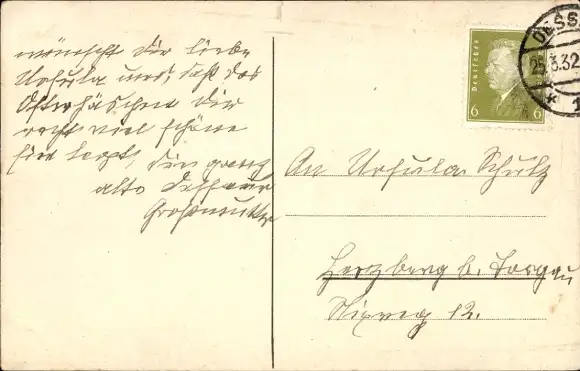 wünscht Dir liebe
Ursula und, daß das
Osterhäschen Dir
recht viel schöne
Eier legt, Dein ganz
alte Dessauer
Großmutter
An Ursula Schulz
Herzberg b. Torgau
Nixweg 12.
Deutsches
6 6
DESS
25.3.32
* 1